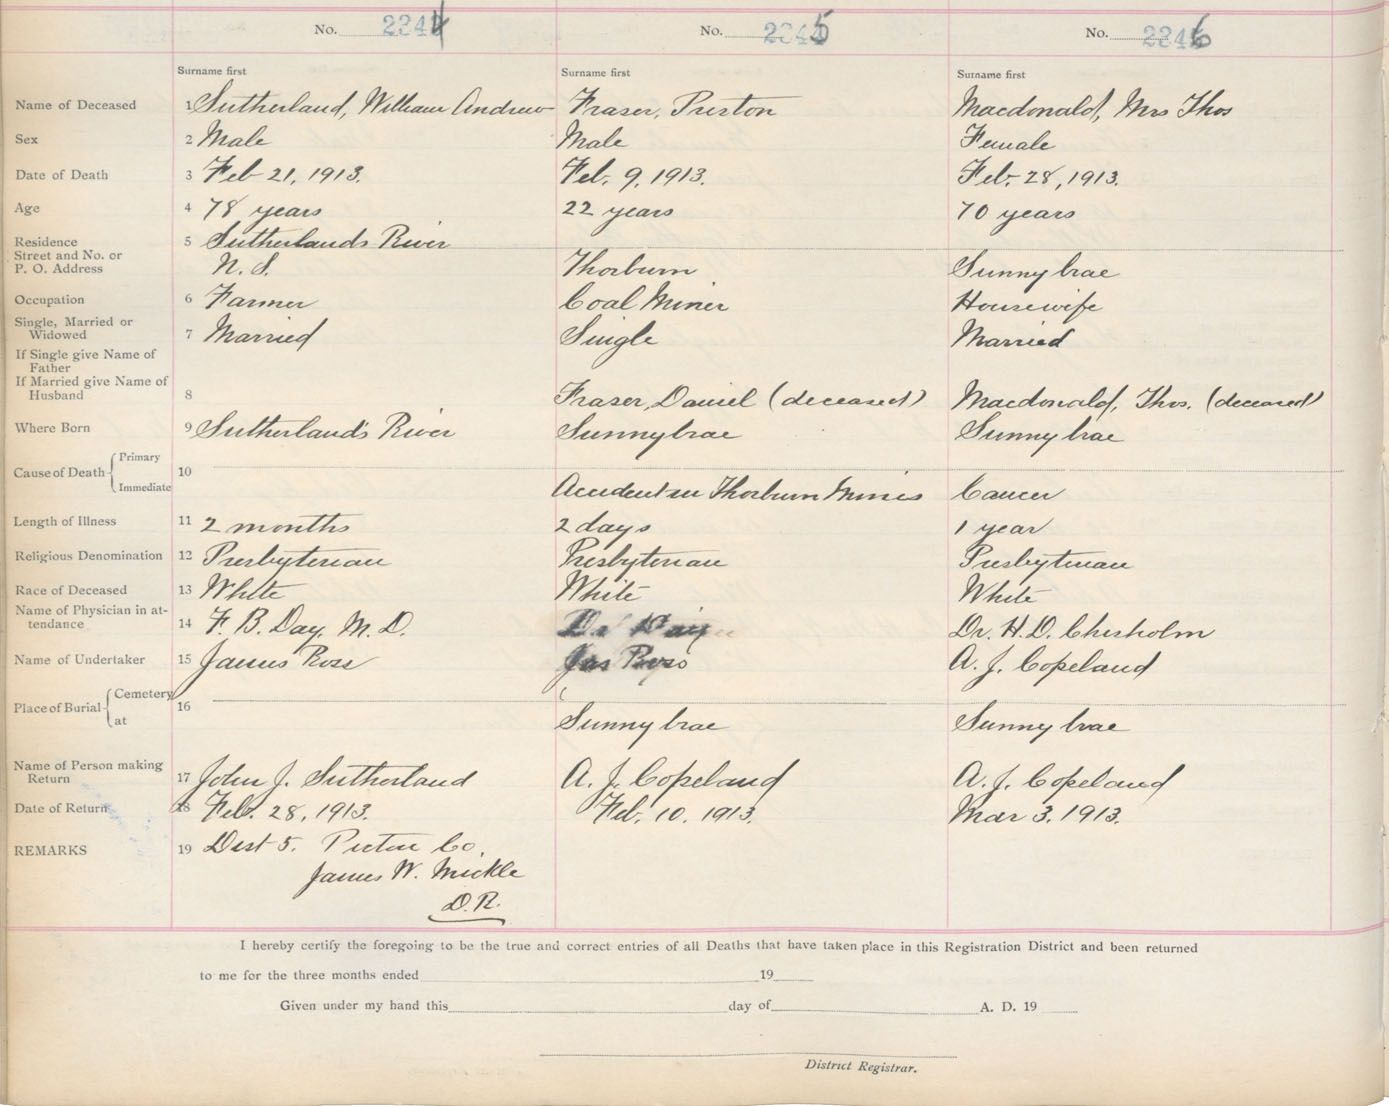 No. 2344 No. 2345 No. 2346
Surname first Surname first Surname first
Name of Deceased 1 Sutherland, William Andrew Fraser, Preston Macdonald, Mrs Thos
Sex 2 Male Male Female
Date of Death 3 Feb 21, 1913. Feb. 9, 1913. Feb. 28, 1913.
Age 4 78 years 22 years 70 years
Residence 5 Sutherlands River
Street and No. or
P. O. Address N. S. Thorburn Sunny brae
Occupation 6 Farmer Coal Miner Housewife
Single, Married or
Widowed 7 Married Single Married
If Single give Name of
Father
If Married give Name of
Husband 8 Fraser, Daniel (deceased) Macdonald, Thos. (deceased)
Where Born 9 Sutherland's River Sunnybrae Sunny brae
Cause of Death Primary 10
Immediate Accident in Thorburn Mines Cancer
Length of Illness 11 2 months 2 days 1 year
Religious Denomination 12 Presbyterian Presbyterian Presbyterian
Race of Deceased 13 White White White
Name of Physician in at-
tendance 14 F. B. Day, M. D. Dr Day Dr. H. D. Chisholm
Name of Undertaker 15 James Ross Jas Ross A. J. Copeland
Place of Burial Cemetery 16
at Sunny brae Sunny brae
Name of Person making
Return 17 John J. Sutherland A. J. Copeland A. J. Copeland
Date of Return 18 Feb. 28, 1913. Feb. 10. 1913. Mar 3. 1913.
REMARKS 19 Dist 5. Pictou Co.
James W. Mickle
D.R.
I hereby certify the foregoing to be the true and correct entries of all Deaths that have taken place in this Registration District and been returned
to me for the three months ended 19
Given under my hand this day of A. D. 19
District Registrar.